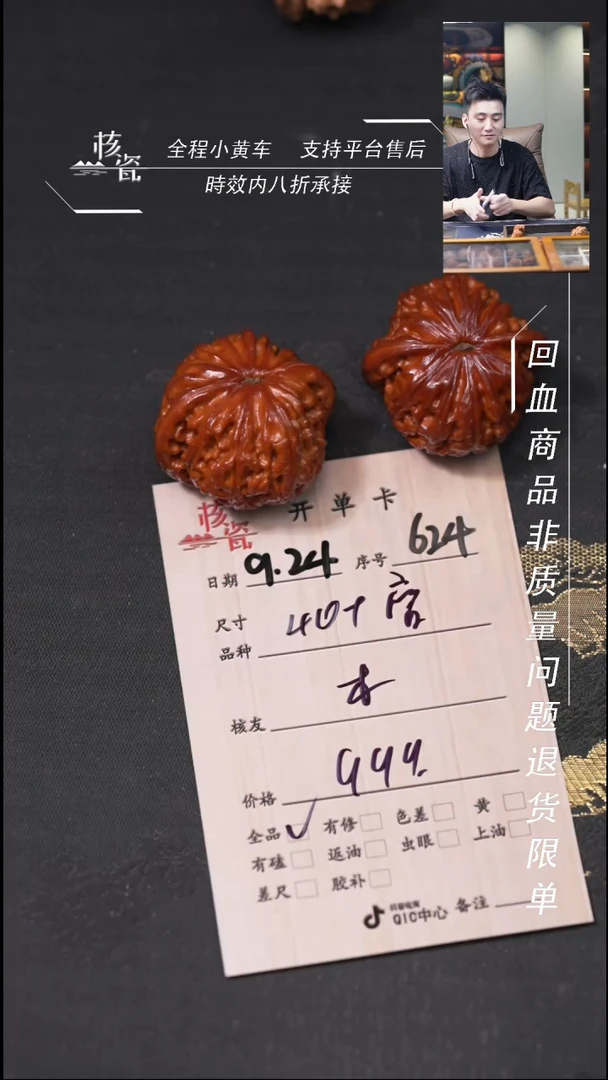 核瓷
全程小黄车 支持平台售后
時效内八折承接
回血商品非质量问题退货限单
核瓷 开单卡
日期 9.24 序号 624
尺寸
品种 40+ 官
核友
价格 999.
全品✓ 有修 色差 黄
有磕 返油 虫眼 上油
差尺 胶补
抖音电商
QIC中心 备注